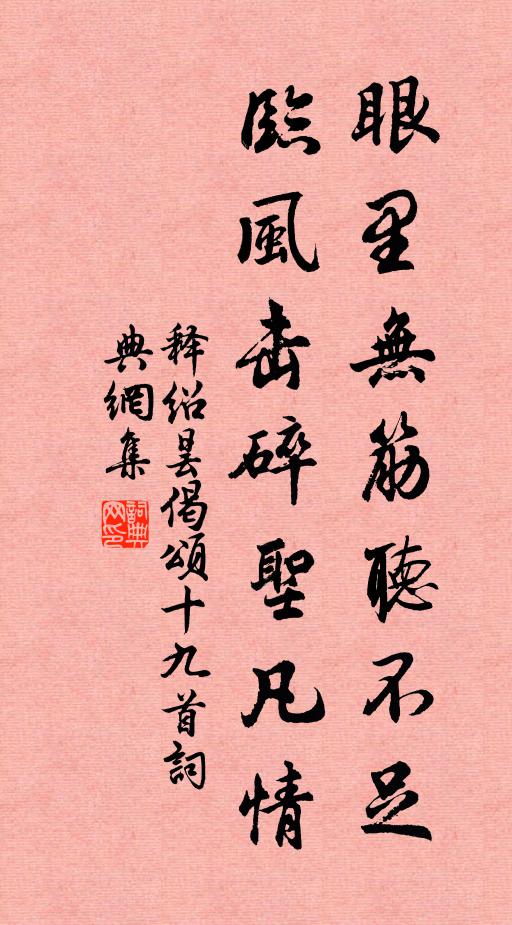 眼里無筋聽不足
臨風击碎聖凡情
释绍昙偈頌十九首詞
典網集
詞典
网印